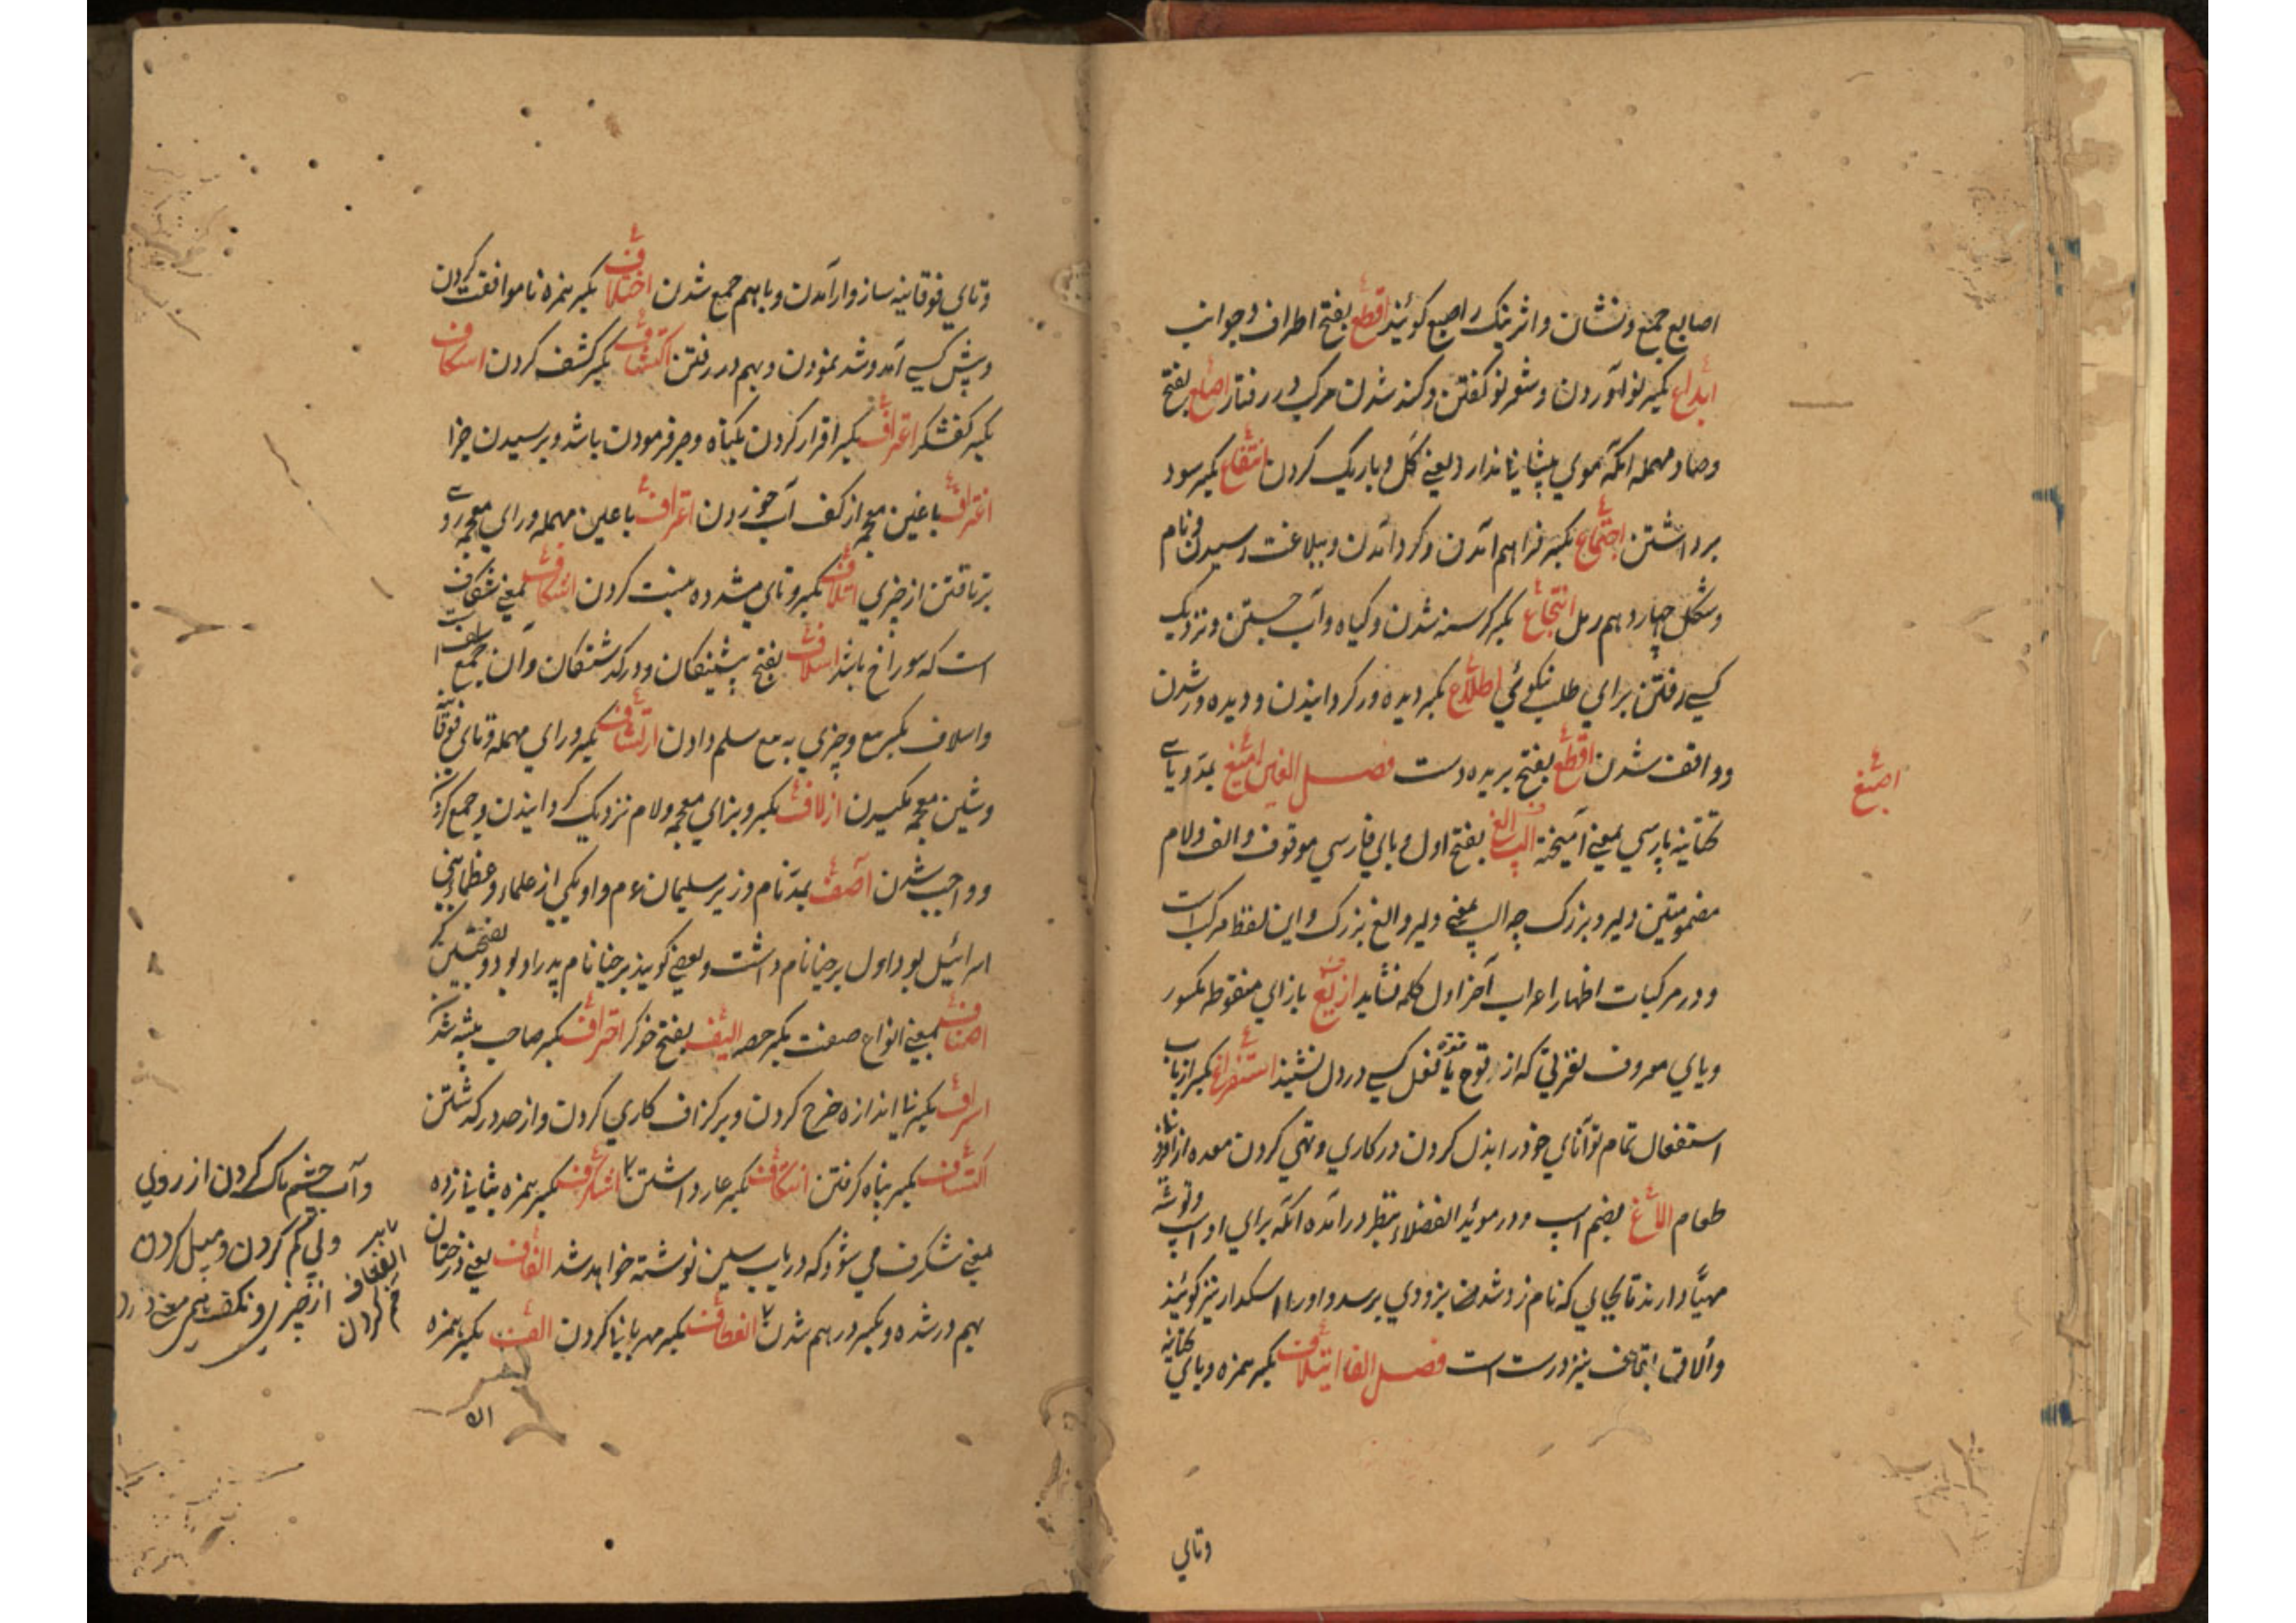 اصابع جمع و نشان و اثر نیک را اصبع کویند اقطع بفتح اطراف و جوانب
ابداع بکسر نو آوردن و شعر نو کفتن و کند شدن مرکب در رفتار اصلع بفتح
وصاد مهمله انکه موی پیشانی ندارد یعنی کل و باریک کردن انتفاع بکسر سود
برداشتن اجتماع بکسر فراهم آمدن و کرد آمدن و ببلاغت رسیدن و نام
و شکل چهاردهم رمل انتجاع بکسر کرسنه شدن و کیاه و آب جستن و نزدیک
کسی رفتن برای طلب نیکوئی اطلاع بکسر دیده ور کردانیدن و دیده ور شدن
و واقف شدن اقطع بفتح بریده دست فصل الغین امیغ بمد و یای
اصبغ
تحتانیه پارسی بمعنی آمیخته الپ الغ بفتح اول و بای فارسی موقوف و الف و لام
مضمومتین دلیر و بزرک چه الپ بمعنی دلیر و الغ بزرک و این لفظ مرکب است
و در مرکبات اظهار اعراب آخر اول کلمه نشاید ازیغ بازای منقوطه مکسور
و یای معروف نفرتی که از قوع یا فعل کسی در دل نشیند استفراغ بکسر از باب
استفعال تمام توانای خود را بذل کردن در کاری و تهی کردن معده از
طعام الاغ بضم اسپ و در موئید الفضلاء بنظر درآمده انکه برای او اسپ و توشه
مهیا دارند تا بجایی که نامزد شده بزودی برسد و او را اسکدار نیز کویند
و الاق بقاف نیز درست است فصل الفا ایتلاف بکسر همزه و یای تحتانیه
وتای
وتای فوقانیه سازوار آمدن و با هم جمع شدن اختلاف بکسر همزه ناموافقت کردن
و پیش کسی آمد و شد نمودن و بهم در رفتن اکتشاف بکسر کشف کردن اسکاف
بکسر کفشکر اعتراف بکسر اقرار کردن بکناه و صبر فرمودن باشد و پرسیدن خبر
اغتراف باغین معجمه از کف آب خوردن اعتراف باعین مهمله و رای معجمه روی
برتافتن از چیزی اتلاف بکسر و تای مشدده نیست کردن اشکاف بمعنی شکاف
است که سوراخ باشد اسلاف بفتح پیشینکان و درکذشتکان و آن جمع سلف است
و اسلاف بکسر بیع و چیزی به بیع سلم دادن ارتشاف بکسر و رای مهمله و تای فوقانیه
و شین معجمه مکیدن ازلاف بکسر و بزای معجمه و لام نزدیک کردانیدن و جمع کردن
و واجب شدن آصف بمد نام وزیر سلیمان ع م و او یکی از علماء و عظماء بنی
اسرائیل بود اول برخیا نام داشت و بعضی کویند برخیا نام پدر او بود و بفتحتین
اصناف بمعنی انواع صنف بکسر حصه الیف بفتح خوکر احتراف بکسر صاحب پیشه شدن
اسراف بکسر نا اندازه خرج کردن و بر کزاف کاری کردن و از حد در کذشتن
اکتناف بکسر پناه کرفتن استنکاف بکسر عار داشتن اشکرف بکسر همزه
بمعنی شکرف می شود که در باب سین نوشته خواهد شد الفاف یعنی درختان
بهم در شده و بکسر درهم شدن انعطاف بکسر مهربانی کردن الف بکسر همزه
الا
و آب چشم پاک کردن از روی
ولی کم کردن و میل کردن
از چیزی و
خم کردن